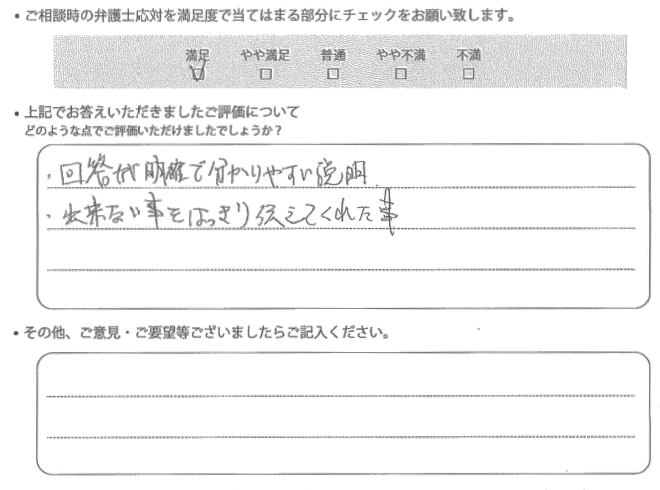 • ご相談時の弁護士応対を満足度で当てはまる部分にチェックをお願い致します。
満足 やや満足 普通 やや不満 不満
☑ □ □ □ □
• 上記でお答えいただきましたご評価について
どのような点でご評価いただけましたでしょうか？
・回答が明確で分かりやすい説明
・出来ない事をはっきり伝えてくれた事
• その他、ご意見・ご要望等ございましたらご記入ください。